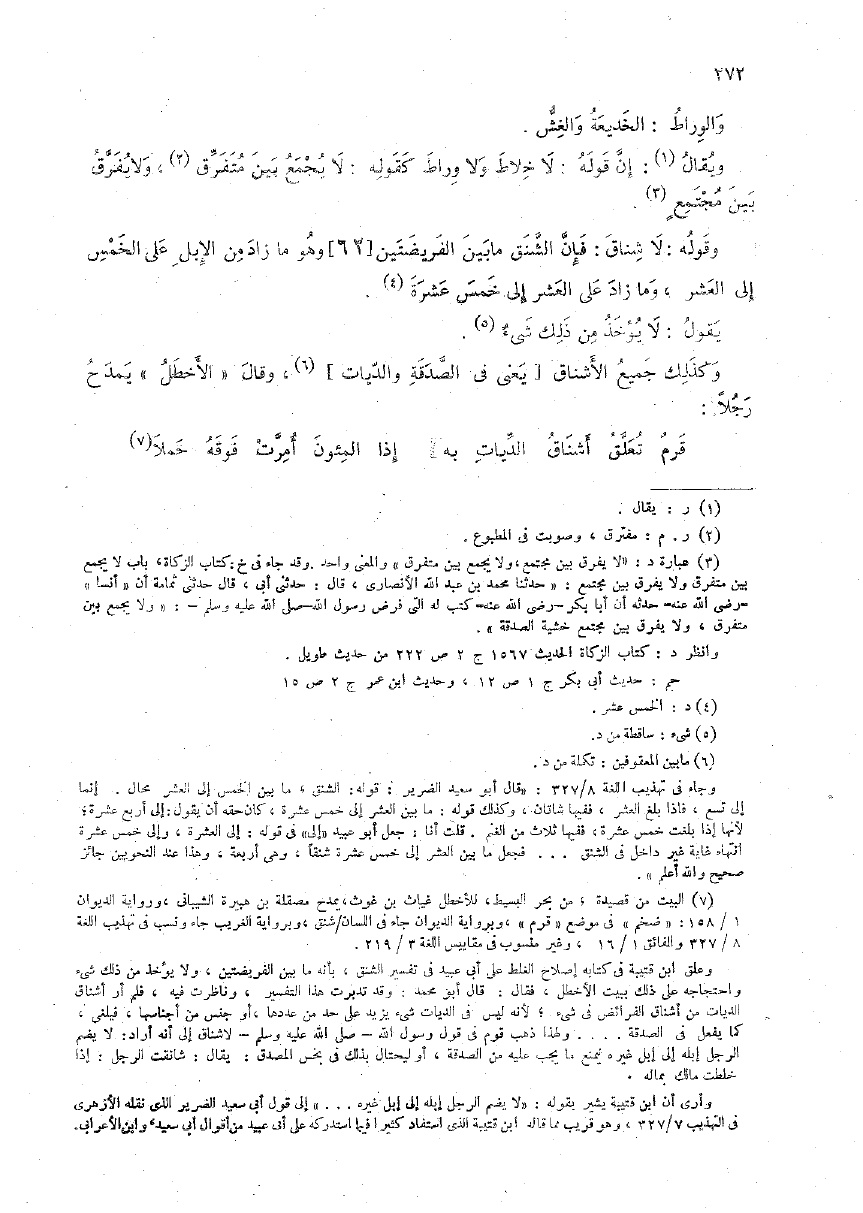 ٢٧٢
وَالوِراطُ : الخَديعَةُ وَالغِشُّ .
ويُقالُ (١) : إِنَّ قَولَهُ : لَا خِلاطَ وَلا وِراطَ كَقَولِه : لَا يُجْمَعُ بَينَ مُتَفَرِّق (٢) ، وَلايُفَرَّقُ
بَينَ مُجْتَمِعٍ (٣) .
وقَولُه : لَا شِناقَ : فَإِنَّ الشَّنَق مابَينَ الفَريضَتَين [٦٢] وهُو ما زادَ مِن الإِبل عَلى الخَمْسِ
إِلى العَشر ، وَما زادَ عَلى العَشر إِلى خَمسَ عَشرَةَ (٤) .
يَقولُ : لَا يُؤْخَذُ مِن ذَلِك شَىءٌ (٥) .
وَكَذَلِك جَميعُ الأَشناق [ يَعْنى فى الصَّدَقَةِ والدّيات ] (٦) ، وقالَ « الأَخطَلُ » يَمدَحُ
رَجُلاً :
قَرمٌ تُعَلَّقُ أَشناقُ الدِّياتِ بِه إِذا المِئونَ أُمِرَّتْ فَوقَهُ حَملاَ (٧)
(١) ر : يقال .
(٢) ر . م : مفترق ، وصوبت فى المطبوع .
(٣) عبارة د : «لا يفرق بين مجتمع ، ولا يجمع بين متفرق » والمعنى واحد . وقد جاء فى خ : كتاب الزكاة ، باب لا يجمع
بين متفرق ولا يفرق بين مجتمع : « حدثنا محمد بن عبد الله الأنصارى ، قال : حدثنى أبى ، قال حدثنى ثمامة أن « أنسا »
–رضى الله عنه– حدثه أن أبا بكر –رضى الله عنه– كتب له التى فرض رسول الله–صلى الله عليه وسلم – : « ولا يجمع بين
متفرق ، ولا يفرق بين مجتمع خشية الصدقة » .
وانظر د : كتاب الزكاة الحديث ١٥٦٧ ج ٢ ص ٢٢٢ من حديث طويل .
حم : حديث أبى بكر ج ١ ص ١٢ ، وحديث ابن عمر ج ٢ ص ١٥
(٤) د : الخمس عشر .
(٥) شىء : ساقطة من د.
(٦) مابين المعقوفين : تكملة من د.
وجاء فى تهذيب اللغة ٣٢٧/٨ : «قال أبو سعيد الضرير : قوله : الشنق ؛ ما بين الخمس إلى العشر محال . إنما
إلى تسع ، فاذا بلغ العشر ، ففيها شاتان ، وكذلك قوله : ما بين العشر إلى خمس عشرة ، كان حقه أن يقول : إلى أربع عشرة ؛
لأنها إذا بلغت خمس عشرة ، ففيها ثلاث من الغنم . قلت أنا : جعل أبو عبيد «إلى» فى قوله : إلى العشرة ، وإلى خمس عشرة
انتهاء غاية غير داخل فى الشنق . . . فجعل ما بين العشر إلى خمس عشرة شنقاً ، وهى أربعة ، وهذا عند النحويين جائز
صحيح والله أعلم » .
(٧) البيت من قصيدة ؛ من بحر البسيط ، للأخطل غياث بن غوث ، يمدح مصقلة بن هبيرة الشيبانى ، ورواية الديوان
١ / ١٥٨ : « ضخم » فى موضع « قرم » ، وبرواية الديوان جاء فى اللسان/شنق ، وبرواية الغريب جاء ونسب فى تهذيب اللغة
٨ / ٣٢٧ والفائق ١ / ١٦ ، وغير منسوب فى مقاييس اللغة ٣ / ٢١٩ .
وعلق ابن قتيبة فى كتابه إصلاح الغلط على أبى عبيد فى تفسير الشنق ، بأنه ما بين الفريضتين ، ولا يؤخذ من ذلك شىء
واحتجاجه على ذلك ببيت الأخطل ، فقال : قال أبو محمد : وقد تدبرت هذا التفسير ، وناظرت فيه ، فلم أر أشناق
الديات من أشناق الفرائض فى شىء ؛ لأنه ليس فى الديات شىء يزيد على حد من عددها ، أو جنس من أجناسها ، فيلغى ،
كما يفعل فى الصدقة . . . . ولهذا ذهب قوم فى قول رسول الله – صلى الله عليه وسلم – لاشناق إلى أنه أراد : لا يضم
الرجل إبله إلى إبل غيره ليمنع ما يجب عليه من الصدقة ، أو ليحتال بذلك فى بخس المصدق : يقال : شانقت الرجل : إذا
خلطت مالك بماله .
وأرى أن ابن قتيبة يشير بقوله : «لا يضم الرجل إبله إلى إبل غيره . . . » إلى قول أبى سعيد الضرير الذى نقله الأزهرى
فى التهذيب ٣٢٧/٧ ، وهو قريب مما قاله ابن قتيبة الذى استفاد كثيرا فيما استدركه على أبى عبيد من أقوال أبى سعيد، وابن الأعرابى.